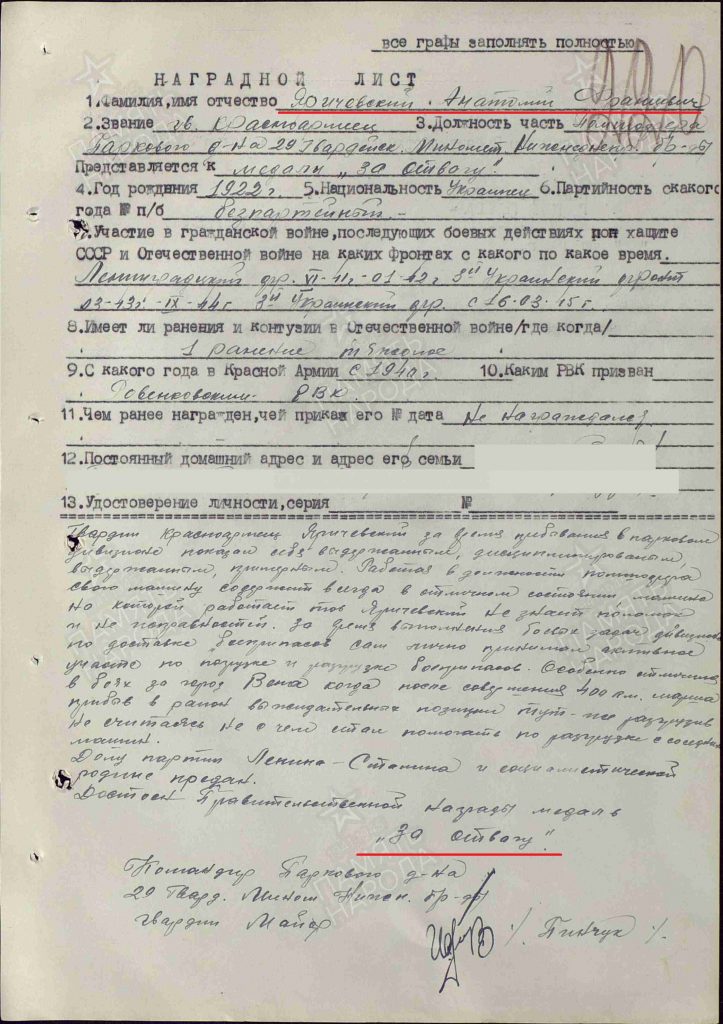 все графы заполнять полностью
НАГРАДНОЙ ЛИСТ
1.Фамилия,имя отчество Яричевский Анатолий Францевич
2.Звание гв. Красноармеец 3.Должность часть
Паркового д-на 29 Гвардейск. Миномет.
Представляется к медали „За отвагу"
4.Год рождения 1922г 5.Национальность Украинец 6.Партийность скакого
года № п/б безпартейный
7.Участие в гражданской войне,последующих боевых действиях пон хащите
СССР и Отечественной войне на каких фронтах с какого по какое время.
Ленинградский фр. VI-41г.-01-42г 3ий Украинский фронт
03-43г-IX-44г 3ий Украинский фр. с 16.03.45г.
8.Имеет ли ранения и контузии в Отечественной войне/где когда/
1 ранение тяжолое
9.С какого года в Красной Армии с 1940г. 10.Каким РВК призван
Ровенковский РВК.
11.Чем ранее награжден,чей приказ его № дата Не награждался
12.Постоянный домашний адрес и адрес его семьи
13.Удостоверение личности,серия №
Гвардии Красноармеец Яричевский за время пребывания в парковом
дивизионе показал себя выдержанным, дисциплинированым,
выдержанным, примерным. Работая в должности
свою машину содержит всегда в отличном состоянии машина
на которой работает тов Яричевский не знает поломок
и не исправностей. За время выполнения боевых задач дивизиона
по доставке боеприпасов сам лично принимал активное
участе по погрузке и разгрузке боеприпасов. Особенно отличился
в боях за город Вена когда после совершения 400 км. марша
прибыв в район выжидательных позиций тут-же разгрузив
не считаясь не о чем стал помогать по разгрузке с соседних
машин.
Делу партии Ленина-Сталина и социалистической
родине предан.
Достоен Правительственной награды медаль
„За отвагу".
Командир Паркового д-на
29 Гвард. Мином. бр-ды
гвардии Майор /. Пинчук /.